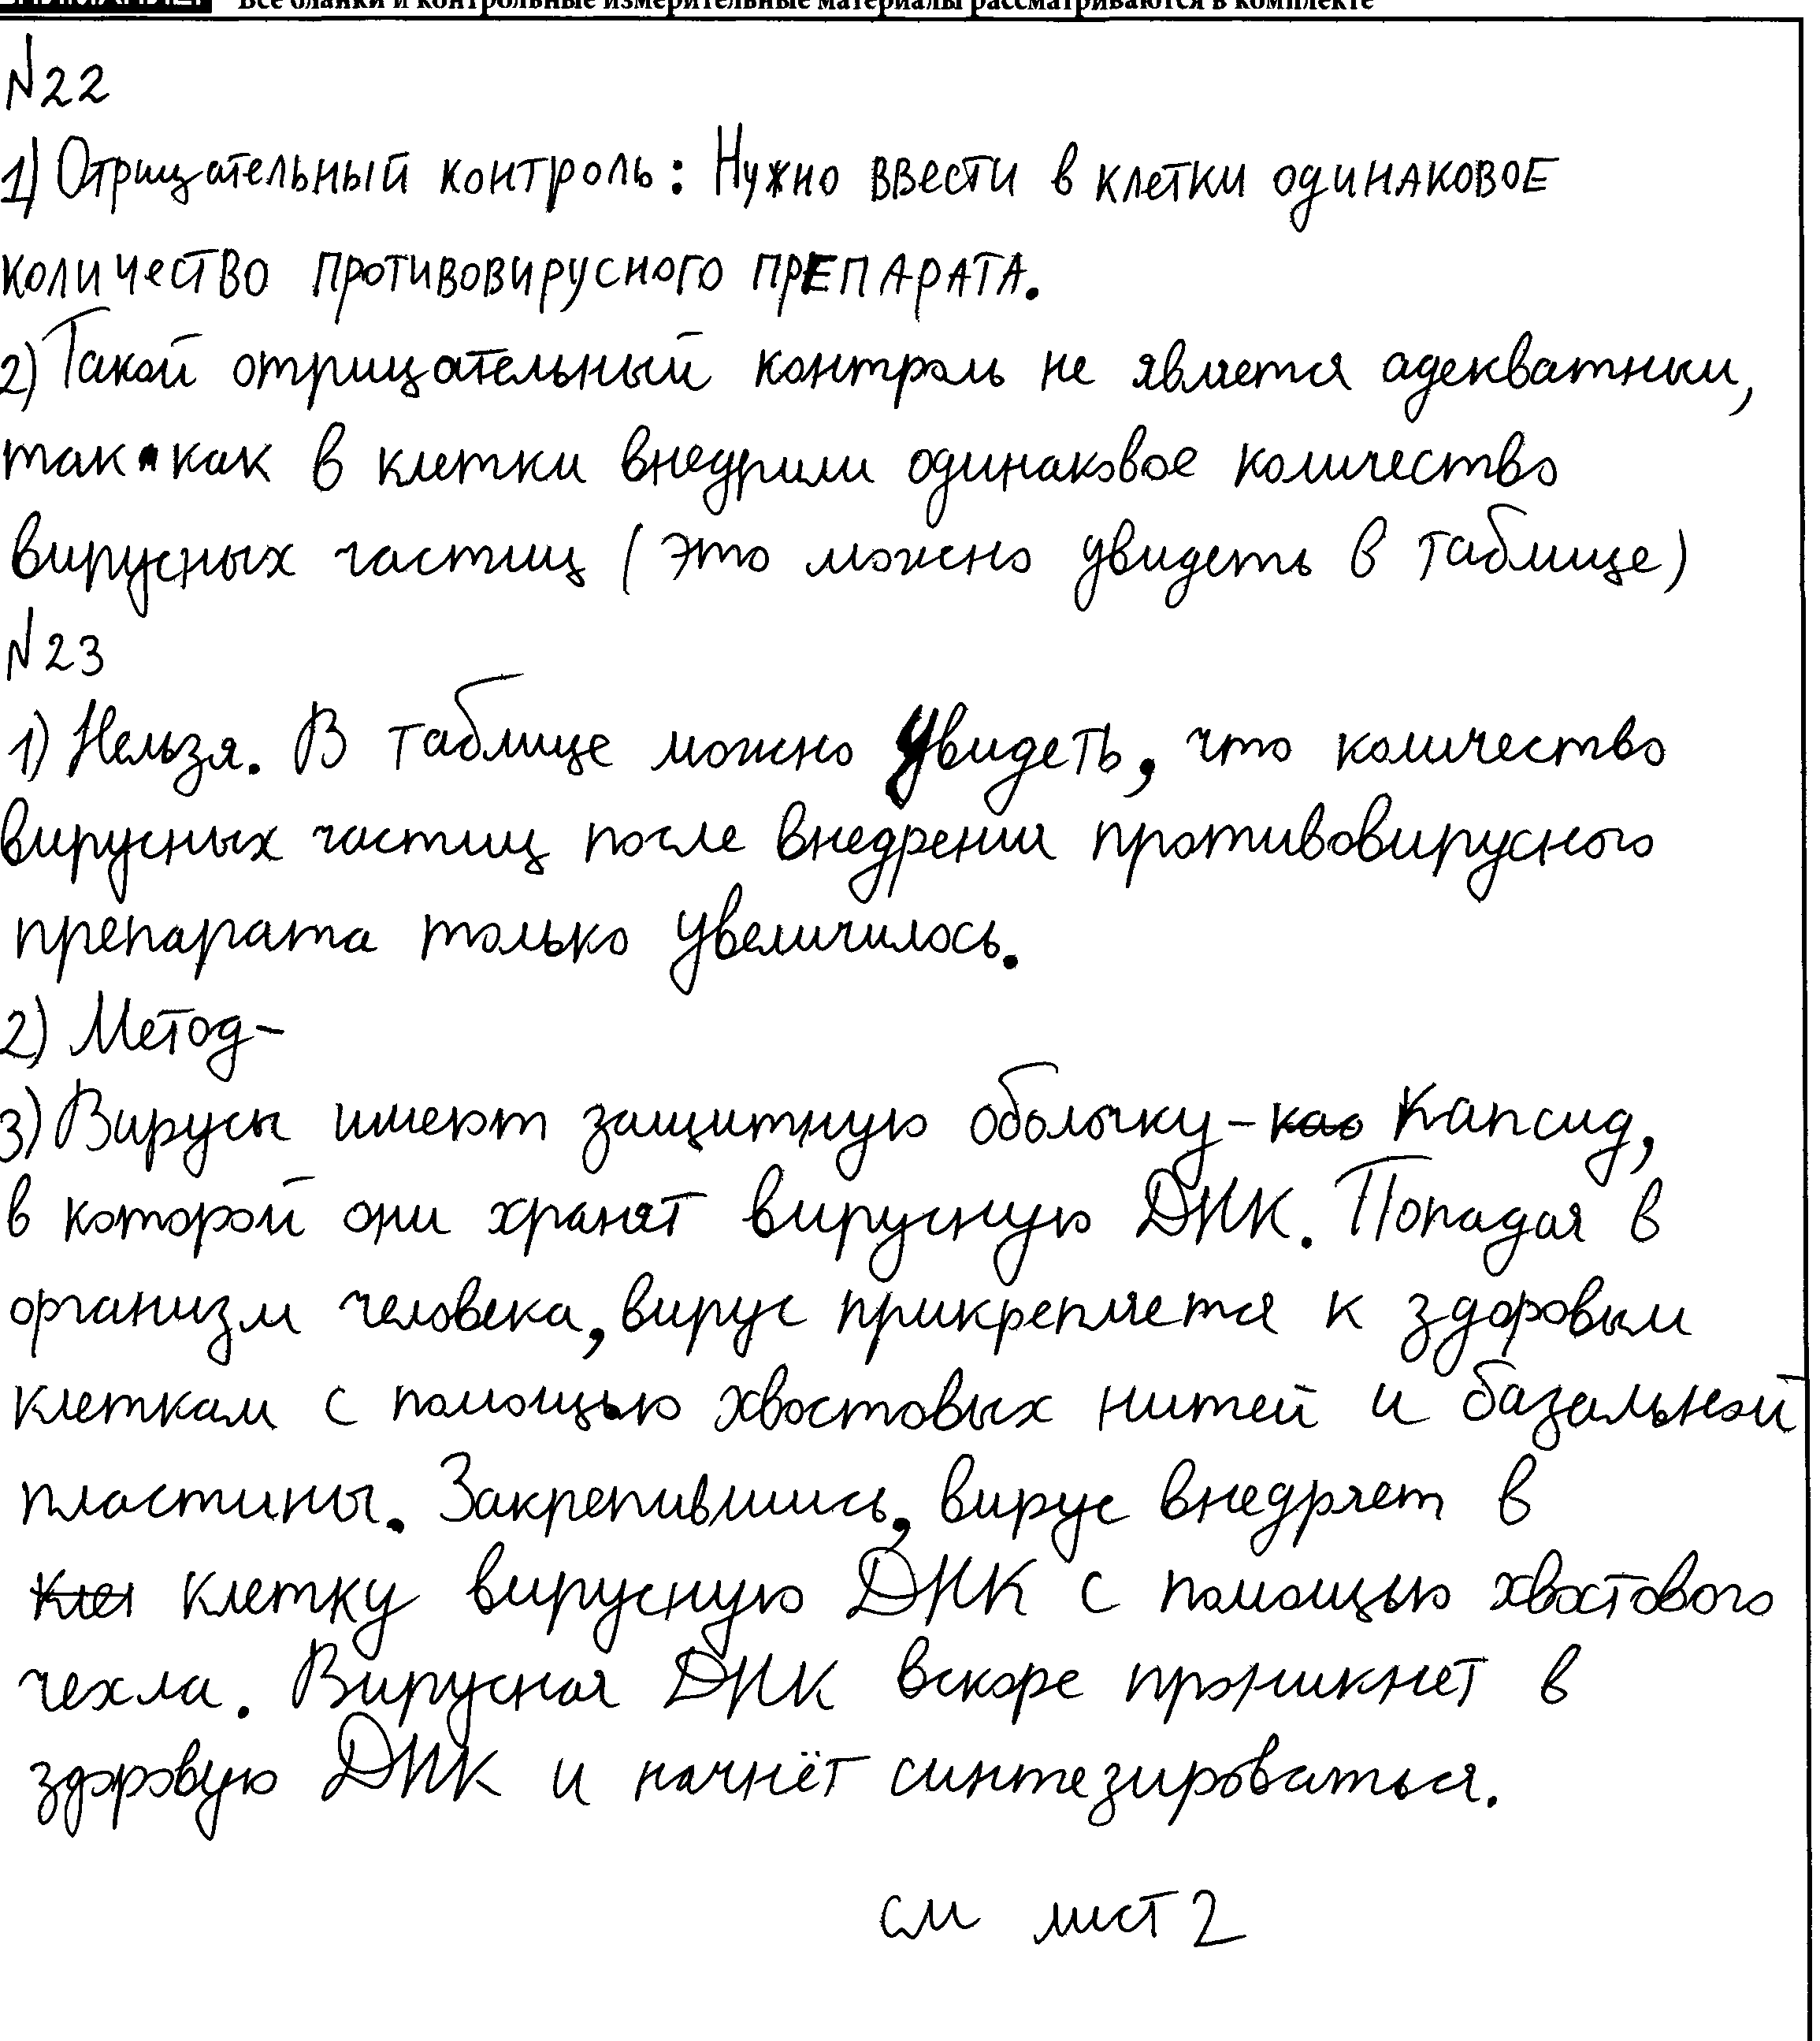 Все бланки и контрольные измерительные материалы рассматриваются в комплекте
№22
1) Отрицательный контроль: Нужно ввести в клетки одинаковое
количество противовирусного препарата.
2) Такой отрицательный контроль не является адекватным,
так как в клетки внедрили одинаковое количество
вирусных частиц (это можно увидеть в таблице)
№23
1) Нельзя. В таблице можно увидеть, что количество
вирусных частиц после внедрения противовирусного
препарата только увеличилось.
2) Метод-
3) Вирусы имеют защитную оболочку - као Капсид,
в которой они хранят вирусную ДНК. Попадая в
организм человека, вирус прикрепляется к здоровым
клеткам с помощью хвостовых нитей и базальной
пластины. Закрепившись, вирус внедряет в
клет клетку вирусную ДНК с помощью хвостового
чехла. Вирусная ДНК вскоре проникнет в
здоровую ДНК и начнёт синтезироваться.
см лист 2